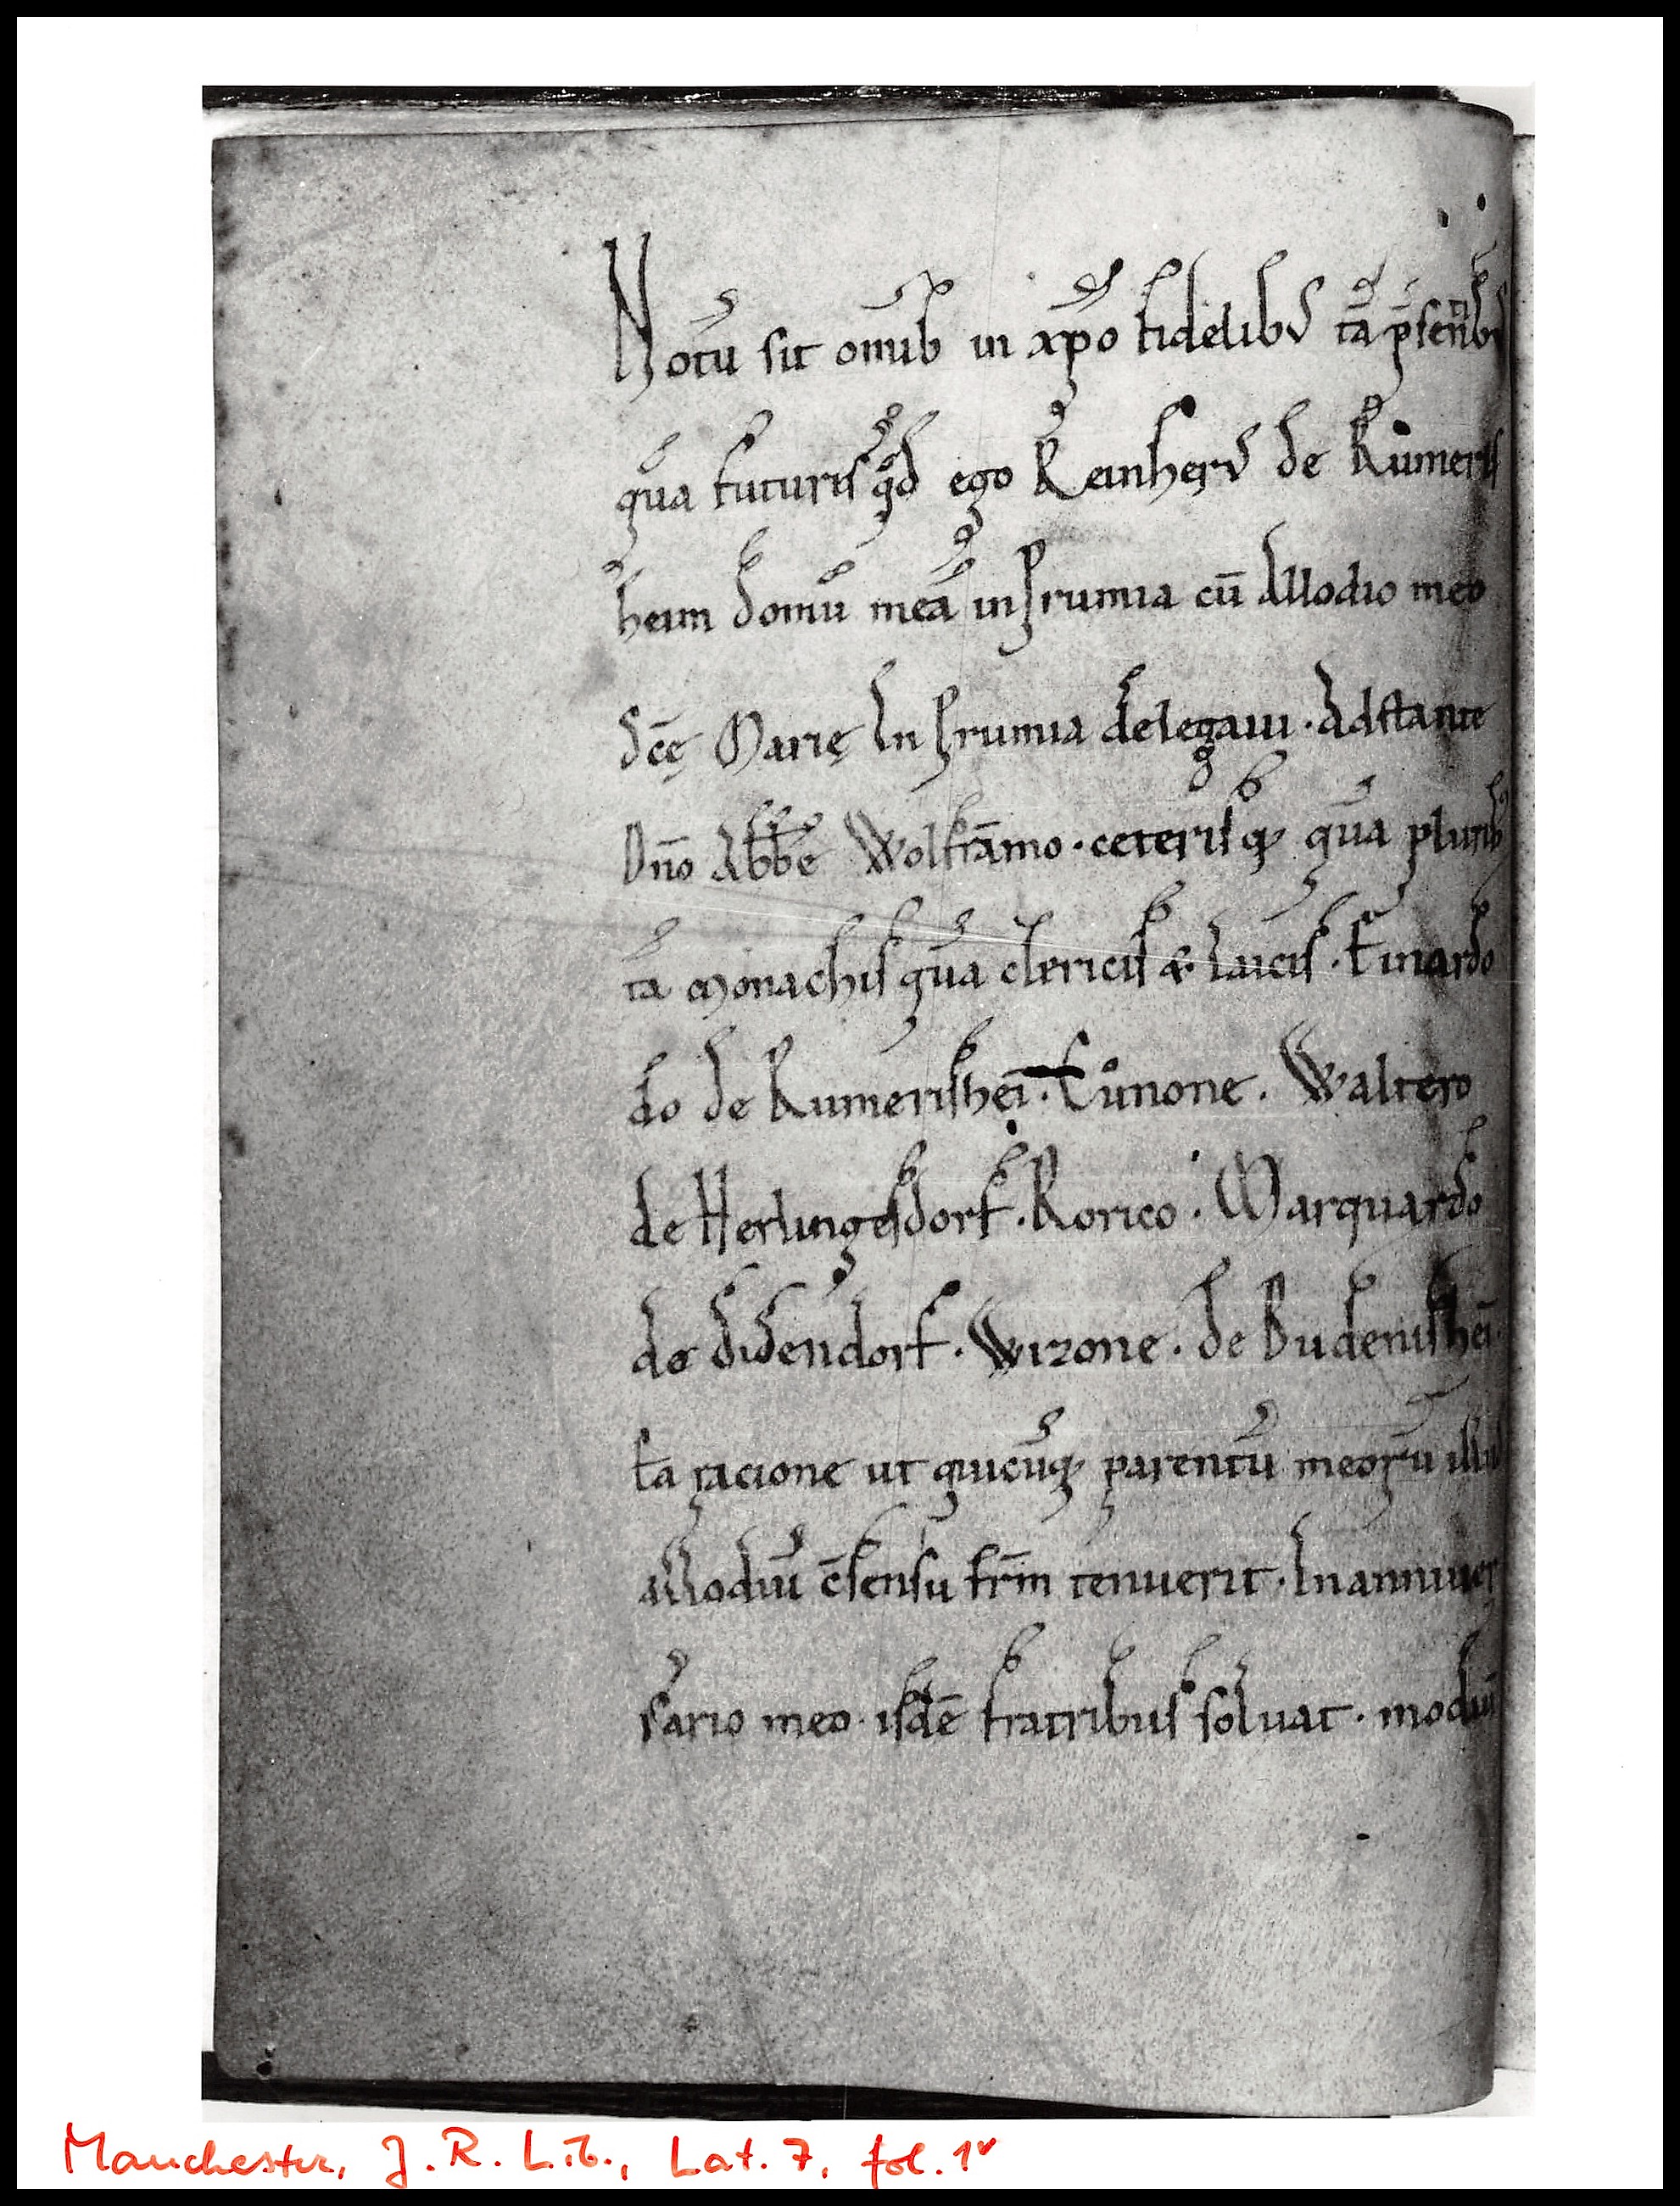 Notū sit omīb in xp̄o fidelibꝰ tā p̄sentibꝰ
quā futuris qͦd ego Reinherꝰ de Rumeris
heim domū meā in prumia cū Allodio meo
Scē Marię In prumia delegaui · Adstante
Dn̄o Abb̄e Wolfrāmo · ceterisqꝫ quā plurib
tā monachis quā clericis & laicis · Einardo
do de Rumerishei̅ · Cůnone · Waltero
de Herlingesdorf · Rorico · Marquardo
de didendorf · Wizone · de Budenishei̅ ·
ea racione ut quicūqꝫ parentū meorū illud
allodiū c̄sensu fr̄m tenuerit · In anniuer
sario meo · isdē fratribus soluat · modiū
Manchester, J. R. Lib., Lat. 7, fol. 1v